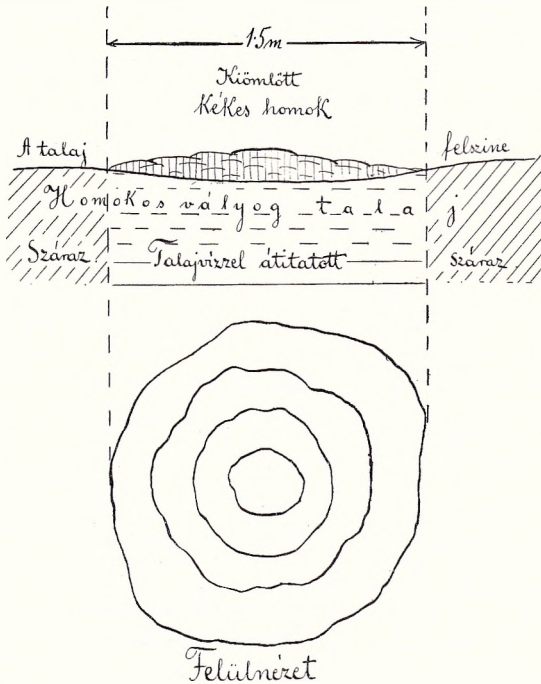 1·5m
Kiömlött
Kékes homok
A talaj felszine
Homokos vályog talaj
Száraz Talajvizzel átitatott Száraz
Felülnézet